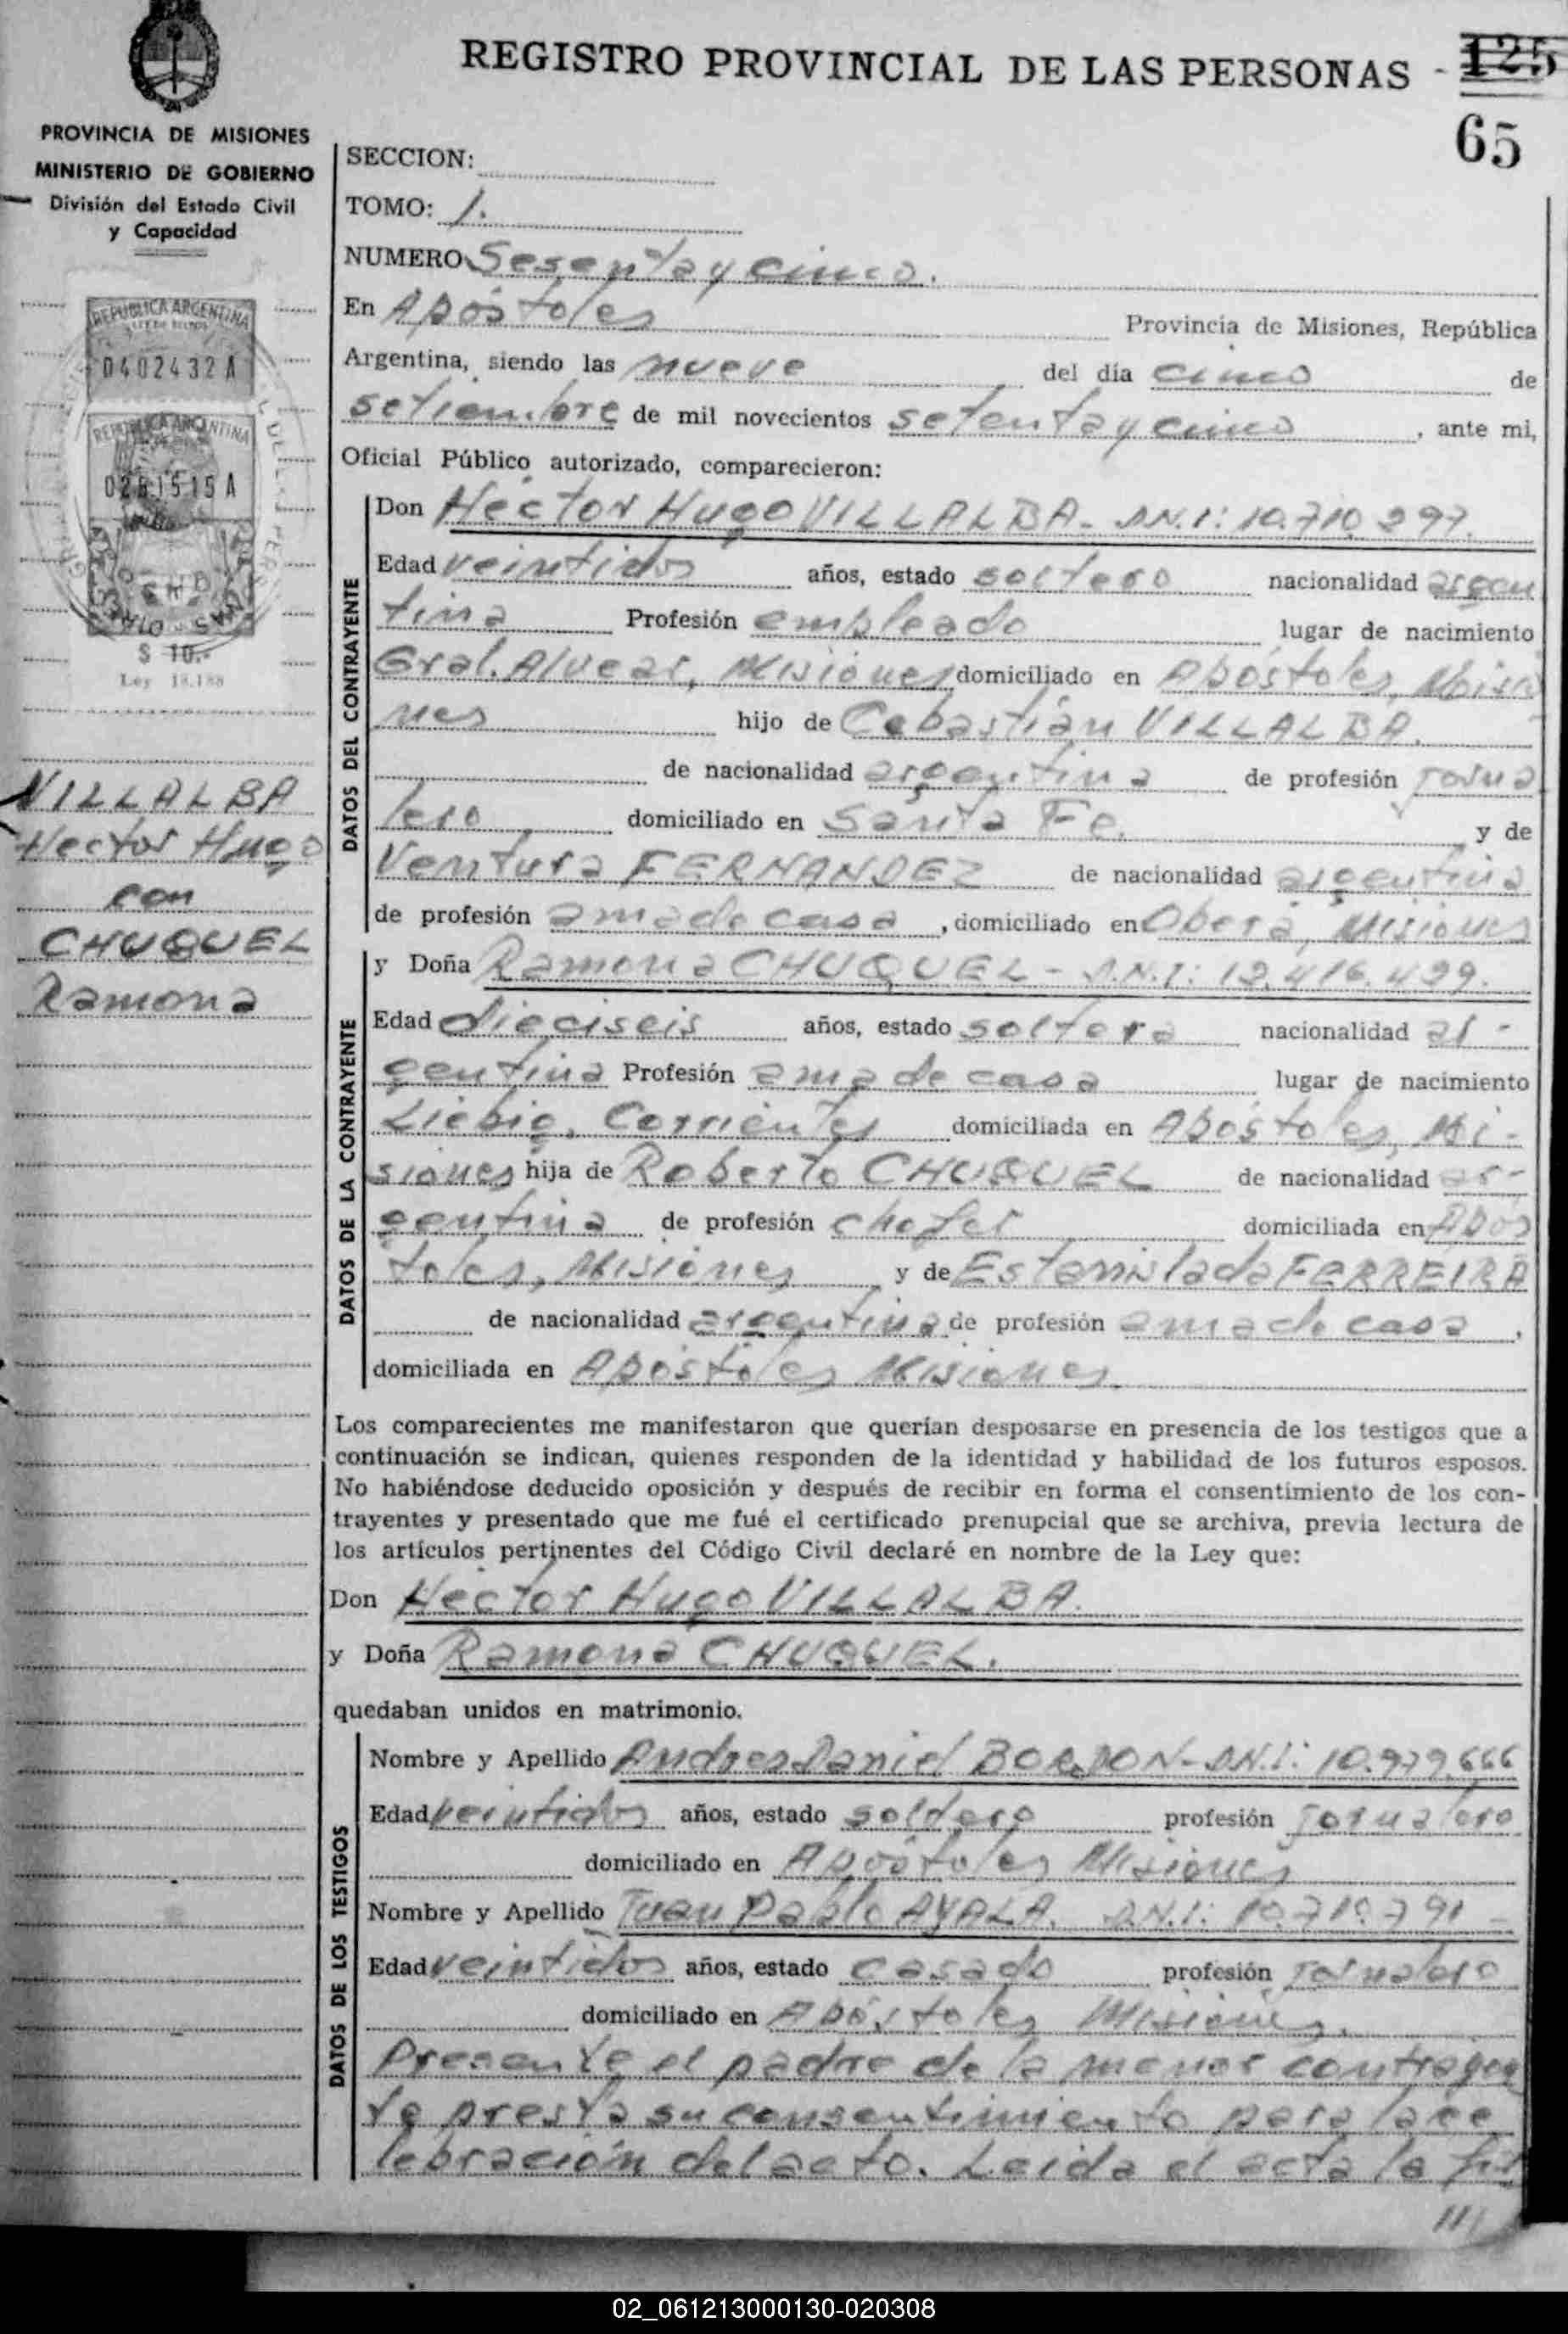 REGISTRO PROVINCIAL DE LAS PERSONAS - 125
65
PROVINCIA DE MISIONES
MINISTERIO DE GOBIERNO
División del Estado Civil
y Capacidad
REPUBLICA ARGENTINA
0402432 A
REPUBLICA ARGENTINA
$ 10.-
Ley 18.188
VILLALBA
Hector Hugo
con
CHUQUEL
Ramona
SECCION:
TOMO: 1.
NUMERO Sesenta y cinco.
En Apóstoles Provincia de Misiones, República
Argentina, siendo las nueve del día cinco de
setiembre de mil novecientos setenta y cinco, ante mi,
Oficial Público autorizado, comparecieron:
DATOS DEL CONTRAYENTE
Don Héctor Hugo VILLALBA - D.N.I: 10.710.297.
Edad veintidos años, estado soltero nacionalidad argen
tina Profesión empleado lugar de nacimiento
Gral. Alvear, Misiones domiciliado en Apóstoles, Misio
nes hijo de Cebastián VILLALBA.
de nacionalidad argentina de profesión jorna
lero domiciliado en Santa Fe. y de
Ventura FERNANDEZ de nacionalidad argentina
de profesión ama de casa, domiciliado en Oberá, Misiones
DATOS DE LA CONTRAYENTE
y Doña Ramona CHUQUEL - D.N.I: 12.416.499.
Edad dieciseis años, estado soltera nacionalidad ar-
gentina Profesión ama de casa lugar de nacimiento
Liebig, Corrientes domiciliada en Apóstoles, Mi-
siones hija de Roberto CHUQUEL de nacionalidad ar-
gentina de profesión chofer domiciliada en Após
toles, Misiones y de Estanislada FERREIRA
de nacionalidad argentina de profesión ama de casa,
domiciliada en Apóstoles Misiones
Los comparecientes me manifestaron que querían desposarse en presencia de los testigos que a
continuación se indican, quienes responden de la identidad y habilidad de los futuros esposos.
No habiéndose deducido oposición y después de recibir en forma el consentimiento de los con-
trayentes y presentado que me fué el certificado prenupcial que se archiva, previa lectura de
los artículos pertinentes del Código Civil declaré en nombre de la Ley que:
Don Héctor Hugo VILLALBA.
y Doña Ramona CHUQUEL.
quedaban unidos en matrimonio.
DATOS DE LOS TESTIGOS
Nombre y Apellido Andres Daniel BORDON - D.N.I: 10.979.666
Edad veintidos años, estado soltero profesión jornalero
domiciliado en Apóstoles Misiones
Nombre y Apellido Juan Pablo AYALA. D.N.I: 10.710.791 -
Edad veintidos años, estado casado profesión jornalero
domiciliado en Apóstoles Misiones.
Presente el padre de la menor contrayen
te presta su consentimiento para la ce
lebración del acto. Leida el acta la fir
///
02_061213000130-020308